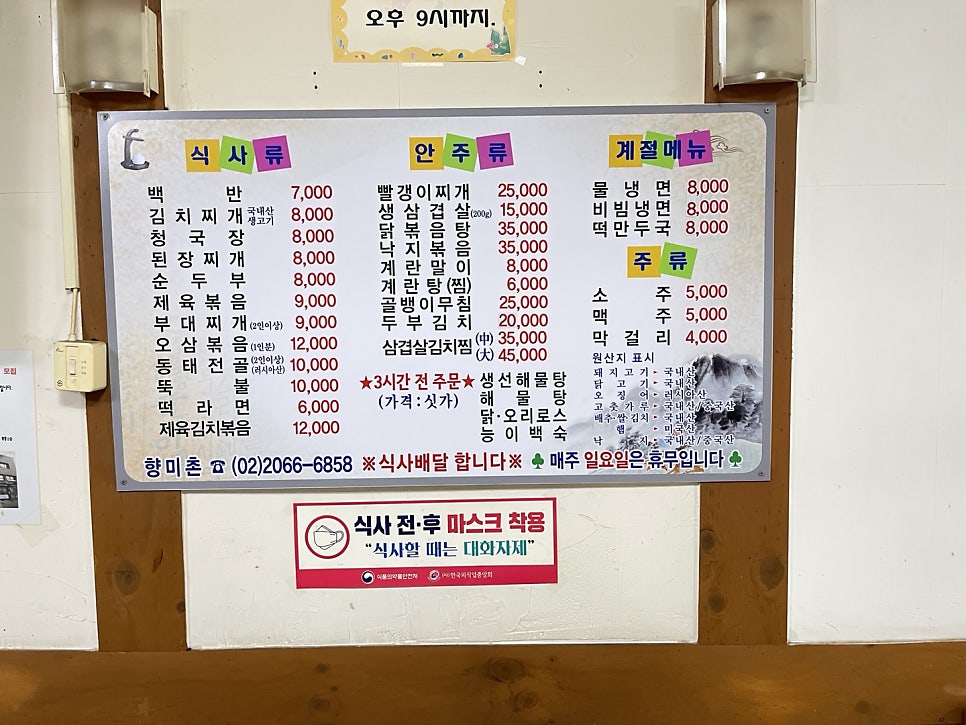 오후 9시까지.
식사류
백반 7,000
김치찌개 국내산 생고기 8,000
청국장 8,000
된장찌개 8,000
순두부 8,000
제육볶음 9,000
부대찌개 (2인이상) 9,000
오삼볶음 (1인분) 12,000
동태전골 (2인이상) (러시아산) 10,000
뚝불 10,000
떡라면 6,000
제육김치볶음 12,000
안주류
빨갱이찌개 25,000
생삼겹살 (200g) 15,000
닭볶음탕 35,000
낙지볶음 35,000
계란말이 8,000
계란탕(찜) 6,000
골뱅이무침 25,000
두부김치 20,000
삼겹살김치찜 (中) 35,000
(大) 45,000
★3시간 전 주문★
(가격 : 싯가)
생선해물탕
해물탕
닭·오리로스
능이백숙
계절메뉴
물냉면 8,000
비빔냉면 8,000
떡만두국 8,000
주류
소주 5,000
맥주 5,000
막걸리 4,000
원산지 표시
돼지고기 ▸ 국내산
닭고기 ▸ 국내산
오징어 ▸ 러시아산
고춧가루 ▸ 국내산/중국산
배추·쌀·김치 ▸ 국내산
햄 ▸ 미국산
낙지 ▸ 국내산/중국산
향미촌 ☎ (02)2066-6858 ※식사배달 합니다※ ♣ 매주 일요일은 휴무입니다 ♣
식사 전·후 마스크 착용
“식사할 때는 대화자제”
식품의약품안전처 (사)한국외식업중앙회
모집